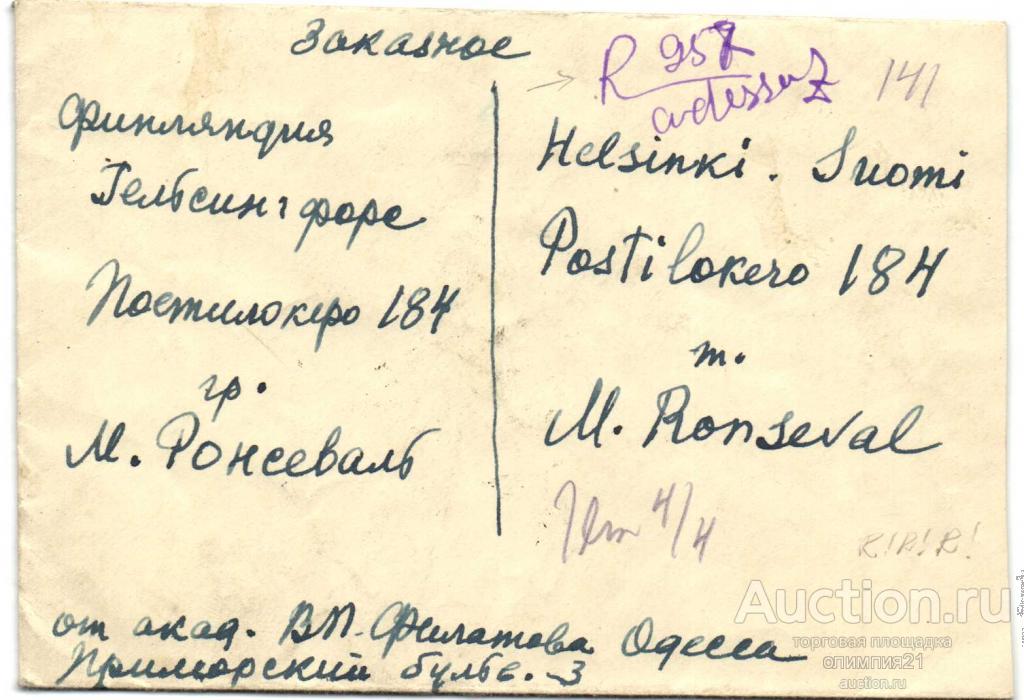 Заказное
R 957
Odessa 2
141
Финляндия
Гельсингфорс
Постилокеро 184
гр.
М. Ронсеваль
Helsinki. Suomi
Postilokero 184
т.
M. Ronseval
4/4
R! R! R!
от акад. ВП. Филатова Одесса
Приморский бульв. 3
Auction.ru
торговая площадка
олимпия21
auction.ru